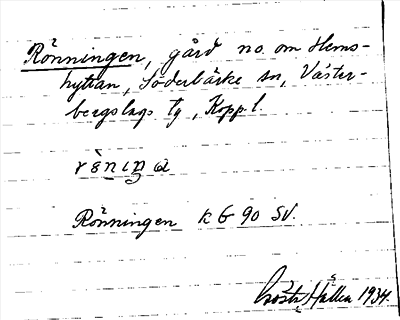 Rönningen, gård no. om Hems-
hyttan, Söderbärke sn, Väster-
bergslags tg, Koppl.
Rönningen k G 90 SV.
Gösta Hallen 1934.